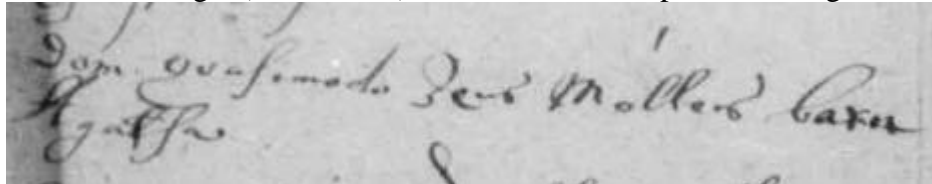 Dom quasimodo Jens Møllers baren
Agatha